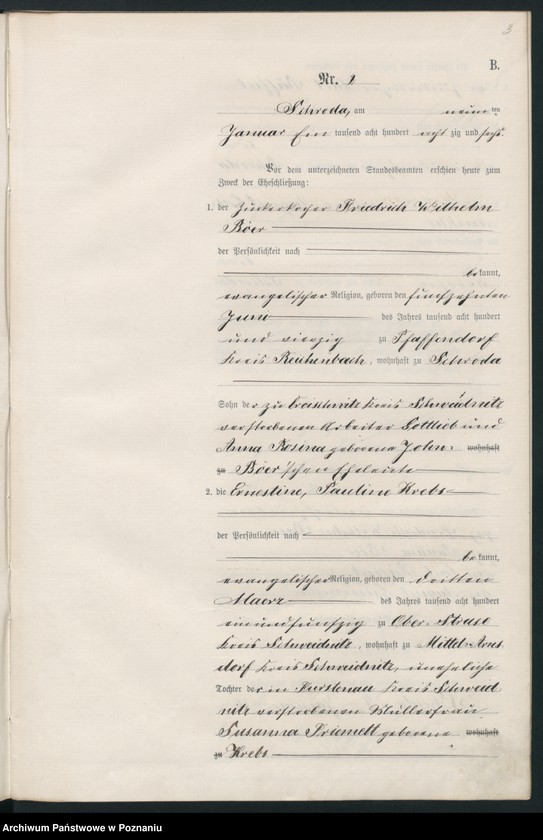 3
B.
Nr. 2
Schroda, am neunten
Januar Ein tausend acht hundert achtzig und sechs.
Vor dem unterzeichneten Standesbeamten erschien heute zum
Zweck der Eheschließung:
1. der Zuckerkocher Friedrich Wilhelm
Böer
der Persönlichkeit nach
bekannt,
evangelischer Religion, geboren den fünfzehnten
Juni des Jahres tausend acht hundert
und vierzig zu Pfaffendorf
Kreis Reichenbach, wohnhaft zu Schroda
Sohn der zu Kreis Schweidnitz
verstorbenen Arbeiter Gottlieb und
Anna Rosina geborene John wohnhaft
zu Böer'schen Eheleute
2. die Ernestine, Pauline Krebs
der Persönlichkeit nach
bekannt,
evangelischer Religion, geboren den dritten
Maerz des Jahres tausend acht hundert
einundfünfzig zu Ober
Kreis Schweidnitz, wohnhaft zu Mittel-Arns
dorf Kreis Schweidnitz, uneheliche
Tochter der in Kreis Schweid
nitz verstorbenen Müllerfrau
Susanna geborene wohnhaft
zu Krebs
Archiwum Państwowe w Poznaniu